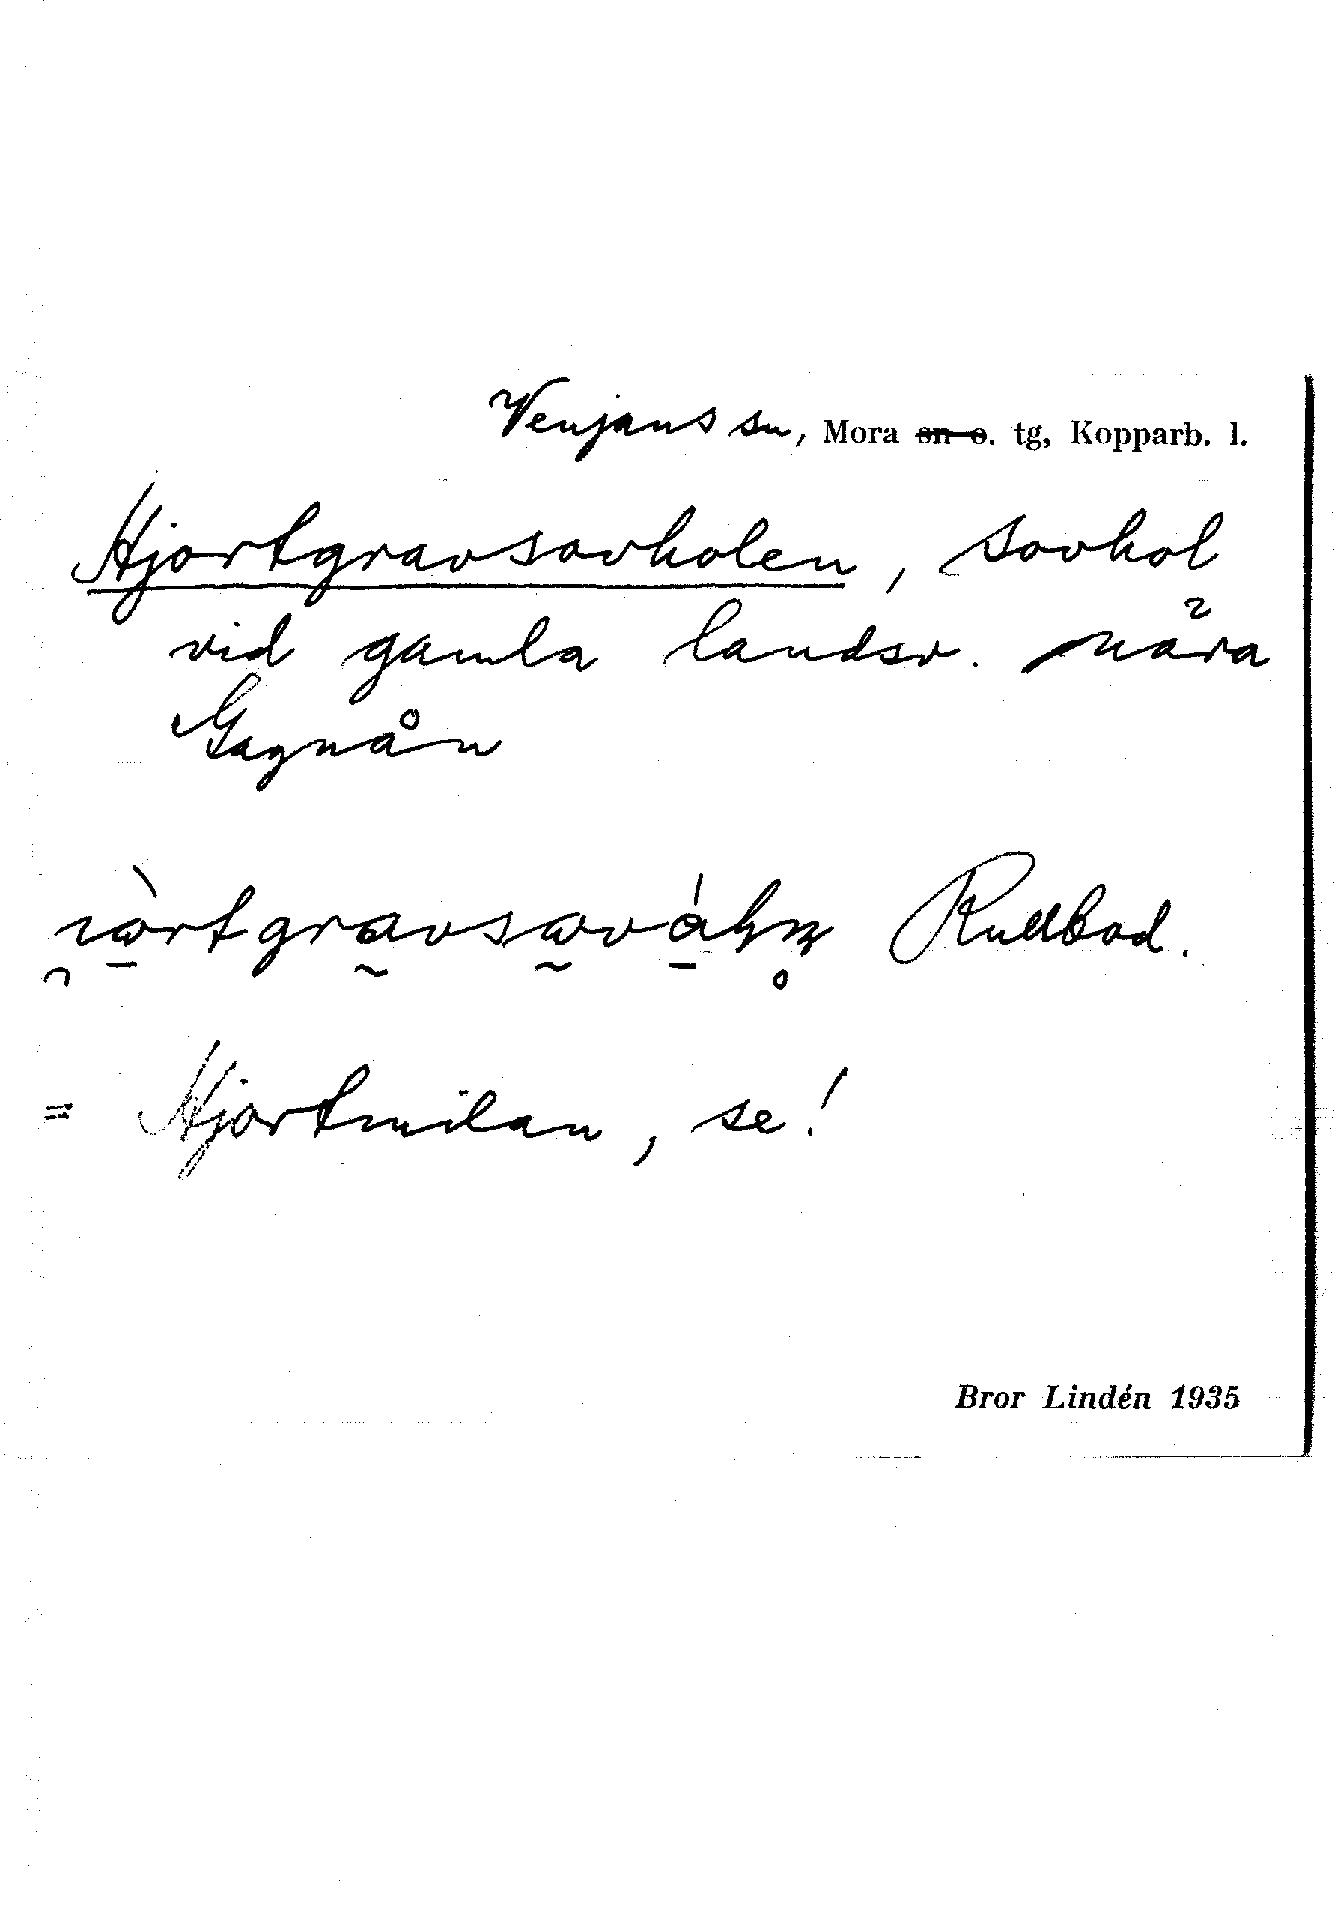 Venjans sn, Mora sn o. tg, Kopparb. l.
Hjortgravsovholen, sovhol
vid gamla landsv. nära
Gagnån
Rullbod.
= Hjortmilan, se!
Bror Lindén 1935